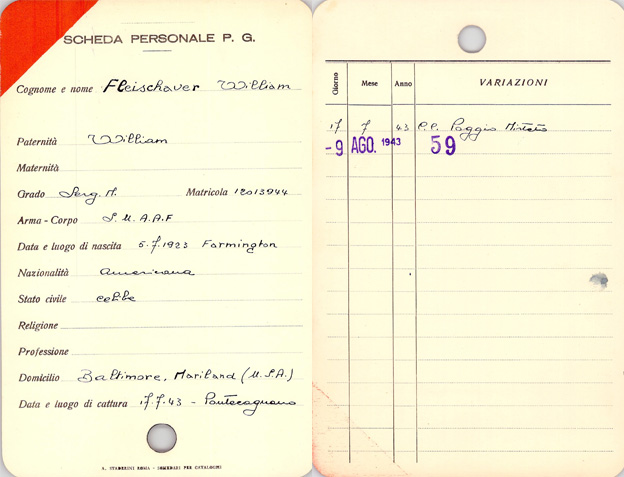 SCHEDA PERSONALE P. G.
Cognome e nome Fleischauer William
Paternità William
Maternità
Grado Serg. M. Matricola 12013944
Arma - Corpo S. U. A. A. F
Data e luogo di nascita 5.7.1923 Farmington
Nazionalità americana
Stato civile celibe
Religione
Professione
Domicilio Baltimore, Mariland (U.S.A.)
Data e luogo di cattura 17.7.43 - Pontecagnano
A. STADERINI ROMA - SCHEDARI PER CATALOGHI
Giorno Mese Anno VARIAZIONI
17 7 43 P.P. Poggio Mirteto
-9 AGO. 1943 59